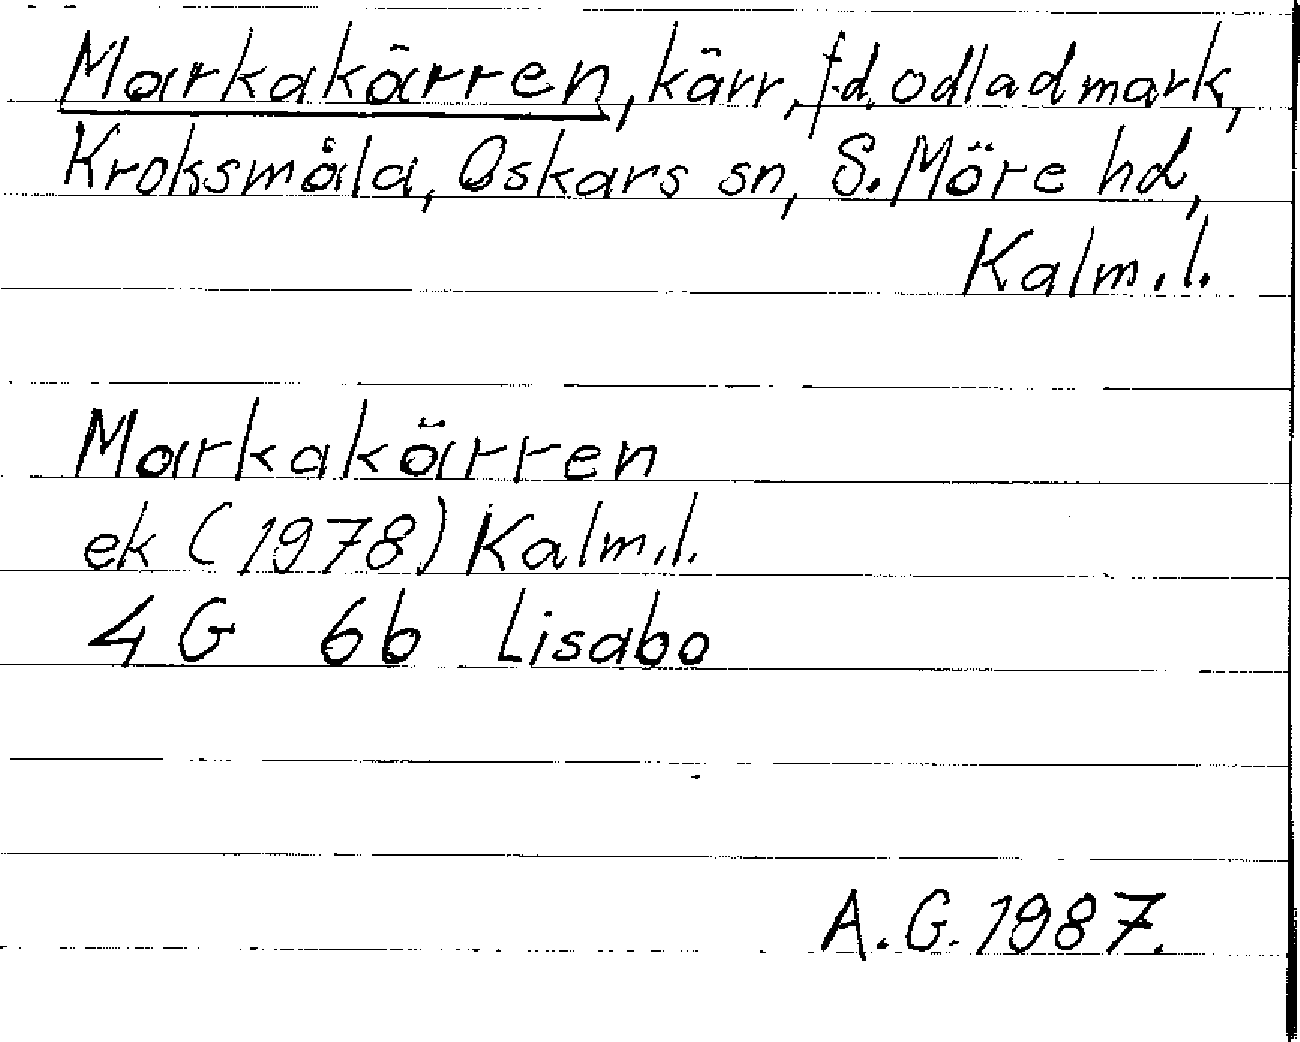 Markakärren, kärr, f.d. odlad mark,
Kroksmåla, Oskars sn, S. Möre hd,
Kalm. l.
Markakärren
ek (1978) Kalm. l.
4 G 6b Lisabo
A. G. 1987.